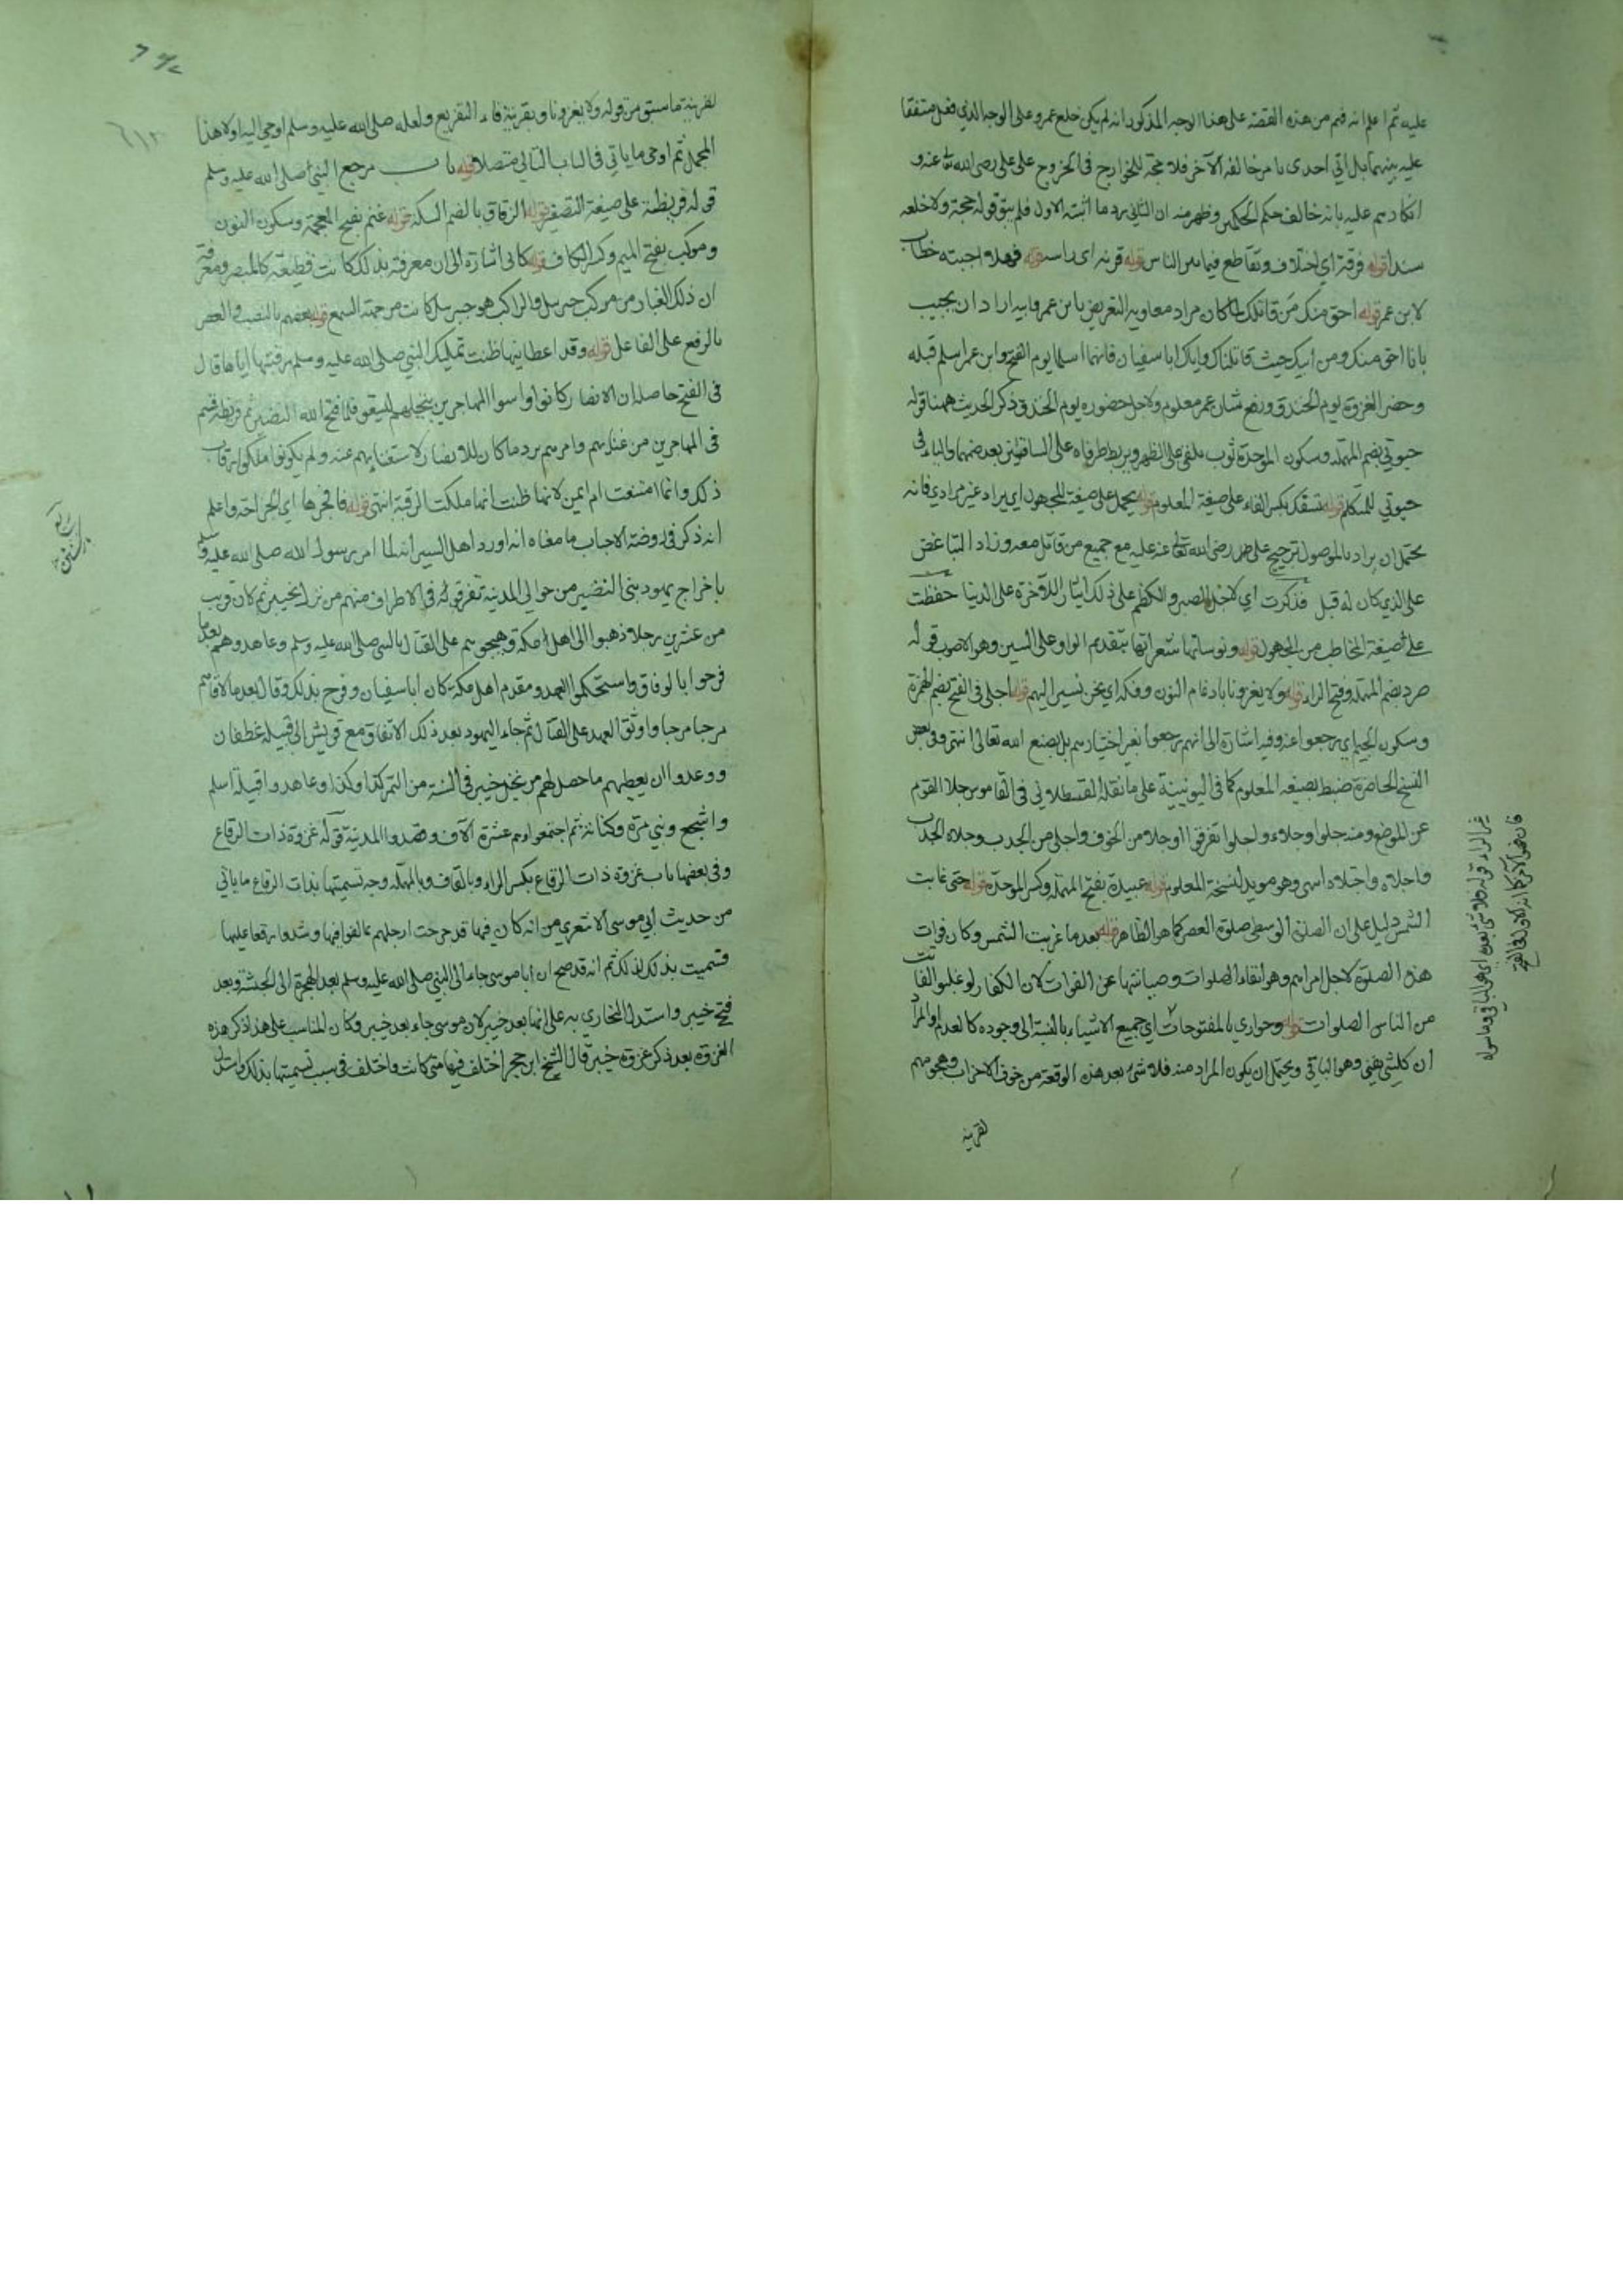 عليه ثم اعلم انه فهم من هذه القصة على هذا الوجه المذكور انه لم يكن خلع عمرو على الوجه الذي فعل متفقا
عليه بينهما بل اتى احدى بامر خالفه الآخر فلا حجة للخوارج في الخروج على علي رضى الله تعا عنه و
انكارهم عليه بانه خالف حكم الحكمين وظهر منه ان الثاني يرد ما اثبته الاول فلم يبق قوله حجة ولا خلعه
سندا قوله فرقة اي اختلاف وتقاطع فيما بين الناس قوله قرنه اى راسه قوله فهلا اجبته خطاب
لابن عمر قوله احق منك من قاتلك لما كان مراد معاوية التعريض بابن عمر وابيه اراد ان يجيب
بانا احق منك ومن ابيك حيث قاتلناك واياك اباسفيان فانهما اسلما يوم الفتح وابن عمر اسلم قبله
وحضر الغزوة يوم الخندق ورفع شان عمر معلوم ولاجل حضوره يوم الخندق ذكر الحديث ههنا قوله
حبوتي بضم المهملة وسكون الموحدة ثوب يلقى على الظهر ويربط طرفاه على الساقين بعد ضمهما والياء في
حبوتي للمتكلم قوله تسفك بكسر الفاء على صيغة المعلوم قوله يحمل على صيغة المجهول اي يراد غير مرادي فانه
يحتمل ان يراد بالموصول ترجيح على رضى الله تعا عنه عليه مع جميع من قاتل معه وزاد التباغض
على الذي كان له قبل فذكرت اي لاجل الصبر والكظم على ذلك ايثارا للآخرة على الدنيا حفظت
على صيغة المخاطب من المجهول قوله ونوساتها شعراتها بتقديم الواو على السين وهو الاصوب قوله
صرد بضم المهملة وفتح الراء قوله ولا يغزونا بادغام النون وفكه اي نحن نسير اليهم قوله اجلى في الفتح بضم الهمزة
وسكون الجيم اي رجعوا عنه وفيه اشارة الى انهم رجعوا بغير اختيارهم بل بصنع الله تعالى انتهى وفى بعض
النسخ الحاضرة ضبط بصيغة المعلوم كما في اليونينية على ما نقله القسطلاني في القاموس جلا القوم
عن الموضع ومنه جلوا وجلاء واجلوا تفرقوا او جلا من الخوف واجلى من الجدب وجلاه الجدب
واجلاه واجتلاه انتهى وهو مويد لنسخة المعلوم قوله عبيدة بفتح المهملة وكسر الموحدة قوله حتى غابت
الشمس دليل على ان الصلوة الوسطى صلوة العصر كما هو الظاهر قوله بعد ما غربت الشمس وكان فوات
هذه الصلوة لاجل امر اهم وهو ابقاء الصلوات وصيانتها عن الفوات لان الكفار لو غلبوا لفاتت
من الناس الصلوات قوله وحواري بالمفتوحات اي جميع الاشياء بالنسبة الى وجوده كالعدم او المراد
ان كل شئ يفنى وهو الباقي ويحتمل ان يكون المراد منه فلا شئ بعد هذه الوقعة من خوف الاحزاب وهجومهم
لقرينة
غير الراء قوله فلا شئ بعده اي هو الباقي وما سواه
لقرينة ما سبق من قوله ولا يغزونا وبقرينة فاء التفريع ولعله صلى الله عليه وسلم اوحي اليه اولا هذا
المجمل ثم اوحى ما ياتي في الباب التالي متصلا قوله باب مرجع النبي صلى الله عليه وسلم
قوله قريظة على صيغة التصغير قوله الزقاق بالضم السكة قوله غنم بفتح المعجمة وسكون النون
وموكب بفتح الميم وكسر الكاف قوله كاني اشارة الى ان معرفته بذلك كانت قطيعة كالمبصر ومعرفة
ان ذلك الغبار من موكب جبرئيل والراكب هو جبرئيل كانت من جهة السمع قوله بعضهم بالنصب والعصر
بالرفع على الفاعل قوله وقد اعطانيها ظنت تمليك النبي صلى الله عليه وسلم برقبتها اياها قال
في الفتح حاصله ان الانصار كانوا واسوا المهاجرين بنخيلهم لينتفعو فلما فتح الله النضير ثم قريظة قسم
في المهاجرين من غنايهم وامرهم برد ما كان للانصار لاستغنايهم عنه ولم يكونوا ملكوا رقاب
ذلك وانما امتنعت ام ايمن لانها ظنت انها ملكت الرقبة انتهى قوله فافجرها اي الجراحة واعلم
انه ذكر في روضة الاحباب ما معناه انه اورد اهل السير انه لما امر رسول الله صلى الله عليه وسلم
باخراج يهود بني النضير من حوالى المدينة تفرقوا في الاطراف منهم من نزل بخيبر ثم كان قريب
من عشرين رجلا ذهبوا الى اهل مكة وهيجوهم على القتال بالنبي صلى الله عليه وسلم وعاهدوهم بعد ما
فرحوا بالوفاق واستحكموا العهد ومقدم اهل مكة كان اباسفيان وفرح بذلك وقال بعد ما لاقاهم
مرحبا مرحبا واوثق العهد على القتال ثم جاء اليهود بعد ذلك الاتفاق مع قريش الى قبيلة غطفان
ووعدوا ان يعطيهم ما حصل لهم من نخل خيبر في السنة من التمر كذا وكذا وعاهدوا قبيلة اسلم
واشجع وبني مرة وكنانة ثم اجتمعوا وهم عشرة آلاف وقصدوا المدينة قوله غزوة ذات الرقاع
وفي بعضها باب غزوة ذات الرقاع بكسر الراء وبالقاف وبالمهملة وجه تسميتها بذات الرقاع ما ياتي
من حديث أبي موسى الاشعري من انه كان فيها قد جرحت ارجلهم فالفوا فيها وشدوا رقعا عليها
فسميت بذلك لذلك ثم انه قد صح ان أبا موسى جاء الى النبي صلى الله عليه وسلم بعد الهجرة الى الحبشة وبعد
فتح خيبر واستدل البخاري به على انها بعد خيبر لان موسى جاء بعد خيبر وكان المناسب على هذا ذكر هذه
الغزوة بعد ذكر غزوة خيبر قال الشيخ ابن حجر اختلف فيها متى كانت واختلف في سبب تسميتها بذلك